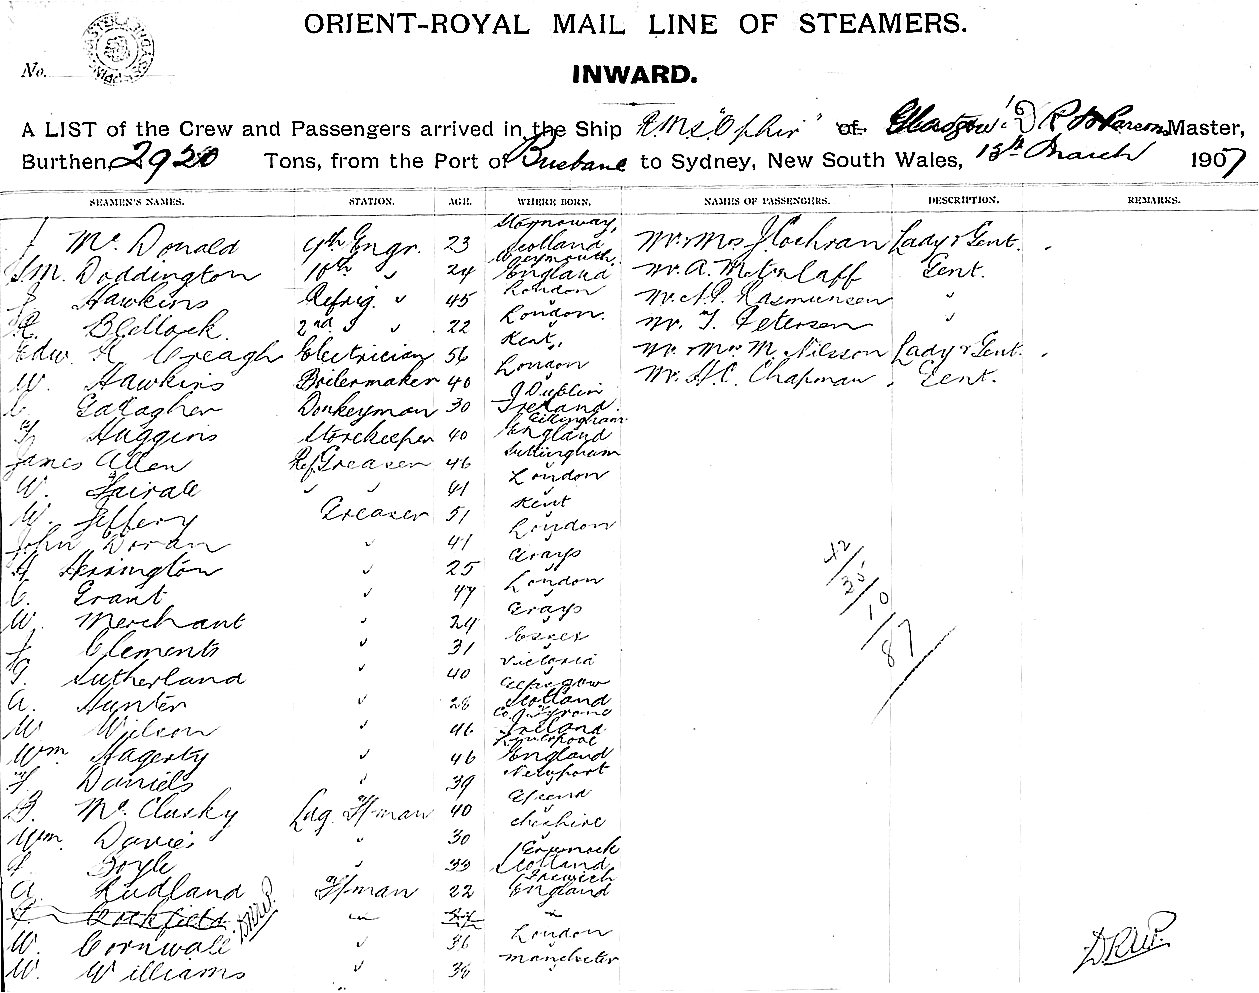 ORIENT-ROYAL MAIL LINE OF STEAMERS.
No.
INWARD.
A LIST of the Crew and Passengers arrived in the Ship R.M.S. "Ophir" of Glasgow, Master,
Burthen, 2920 Tons, from the Port of Brisbane to Sydney, New South Wales, 13th March 1907
SEAMEN'S NAMES. STATION. AGE. WHERE BORN. NAMES OF PASSENGERS. DESCRIPTION. REMARKS.
J McDonald 9th Engr. 23 Stornoway, Scotland Mr & Mrs J. Cochran Lady & Gent.
Doddington 10th " 24 Weymouth, England Mr. A. Gent.
Hawkins Refrig. " 45 London Mr. Rasmussen "
2nd " " 22 London. Mr. T. Petersen "
Edw. Creagh Electrician 56 Kent, Mr & Mrs M. Nilsson Lady & Gent.
W. Hawkins Boilermaker 40 London Mr. H.C. Chapman Gent.
C. Gallagher Donkeyman 30 Dublin Ireland.
Huggins Storekeeper 40 England
James Allen Ref. Greaser 46
W. " " 41 London
W. Jeffery Greaser 51 Kent
John Doran " 41 London
A Herrington " 25 Grays
C. Grant " 47 London
W. Merchant " 24 Grays
J. Clements " 31 Essex
G. Sutherland " 40 Victoria
A. Hunter " 28 Glasgow Scotland
W Wilson " 46 Co. Tyrone Ireland
Wm Hagerty " 46 Liverpool England
Daniels " 39 Newport
B. McClusky Ldg. F/man 40
Wm. Davies " 30 Cheshire
Boyle " 33 Scotland
A. Rudland F/man 22 Ipswich England
W. Cornwall " 36 London
W. Williams " 38 Manchester
42/35/10/87